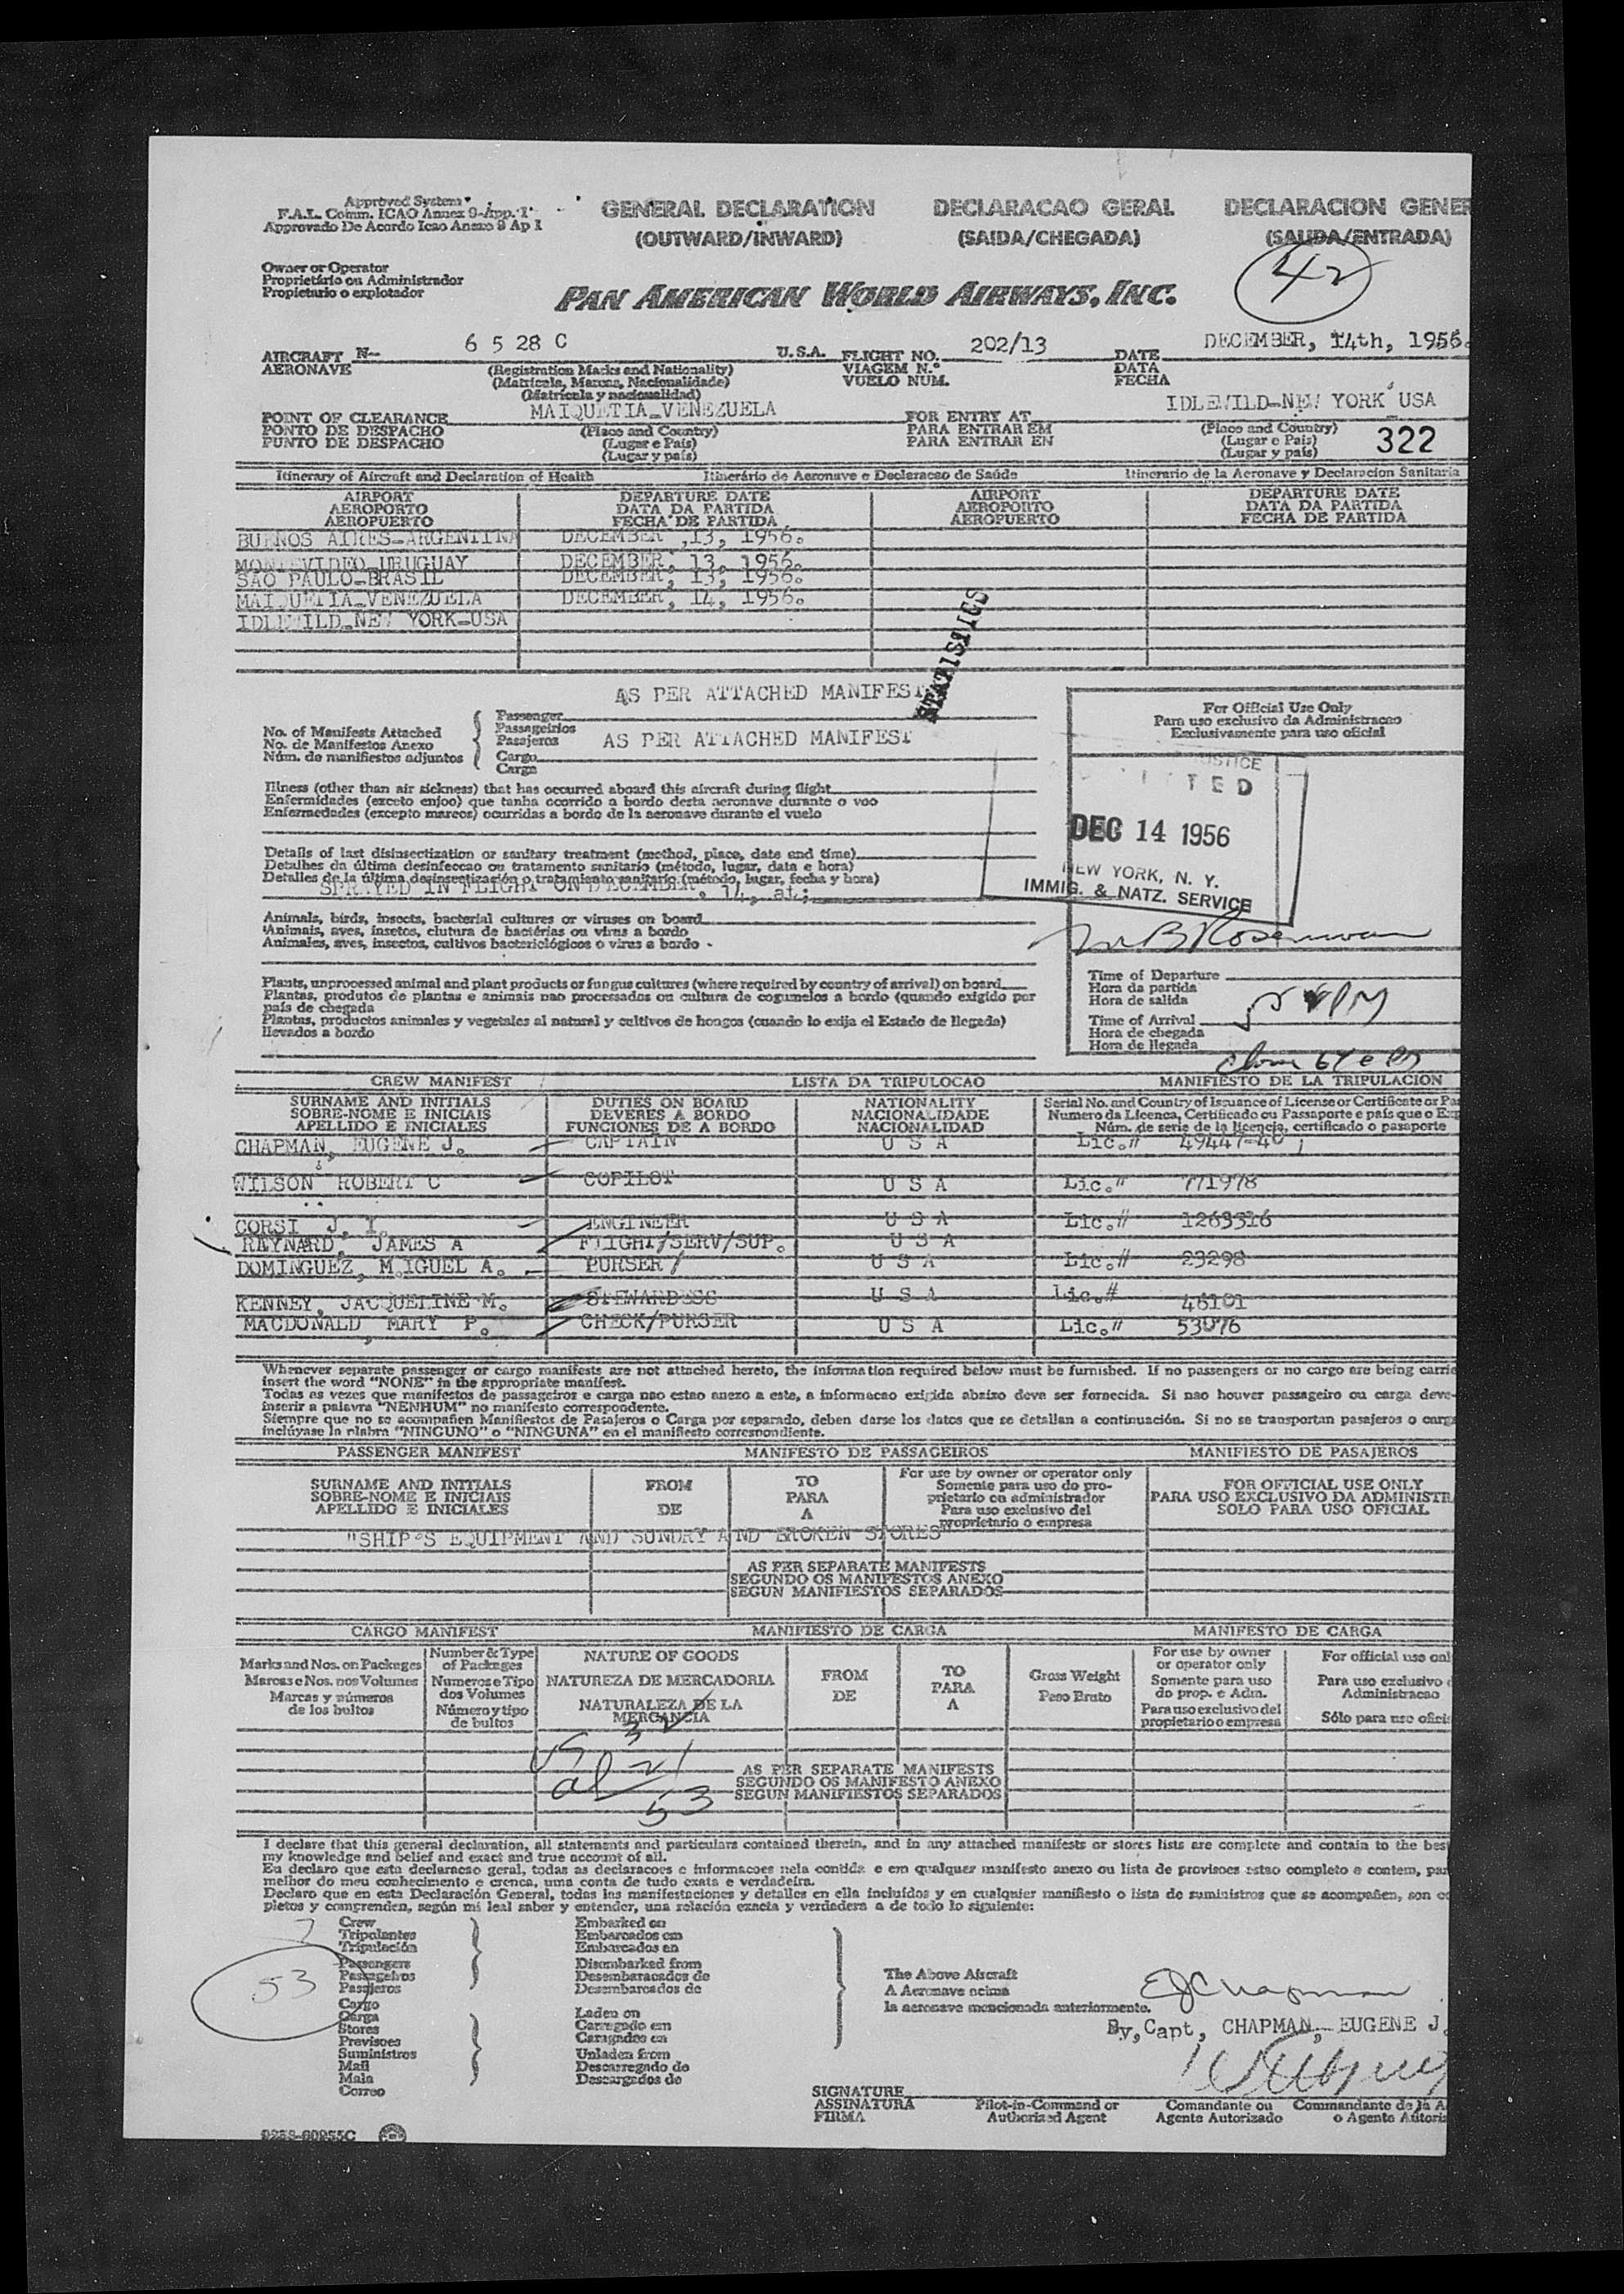 Approved System
F.A.L. Comm. ICAO Annex 9-App. 1
Approvado De Acordo Icao Anexo 9 Ap 1
GENERAL DECLARATION DECLARACAO GERAL DECLARACION GENER
(OUTWARD/INWARD) (SAIDA/CHEGADA) (SALIDA/ENTRADA)
42
Owner or Operator
Proprietário ou Administrador
Propietario o explotador
PAN AMERICAN WORLD AIRWAYS, INC.
AIRCRAFT N-- 6 5 28 C U.S.A. FLIGHT NO. 202/13 DATE DECEMBER, 14th, 1956.
AERONAVE (Registration Marks and Nationality) VIAGEM N.º DATA
(Matricula, Marcas, Nacionalidade) VUELO NUM. FECHA
(Matricula y nacionalidad)
POINT OF CLEARANCE MAIQUETIA-VENEZUELA FOR ENTRY AT IDLEWILD-NEW YORK USA
PONTO DE DESPACHO (Place and Country) PARA ENTRAR EM (Place and Country)
PUNTO DE DESPACHO (Lugar e Pais) PARA ENTRAR EN (Lugar e Pais) 322
(Lugar y país) (Lugar y país)
Itinerary of Aircraft and Declaration of Health Itinerário de Aeronave e Declaracao de Saúde Itinerario de la Aeronave y Declaracion Sanitaria
AIRPORT DEPARTURE DATE AIRPORT DEPARTURE DATE
AEROPORTO DATA DA PARTIDA AEROPORTO DATA DA PARTIDA
AEROPUERTO FECHA DE PARTIDA AEROPUERTO FECHA DE PARTIDA
BUENOS AIRES-ARGENTINA DECEMBER ,13, 1956.
MONTEVIDEO URUGUAY DECEMBER, 13, 1956.
SAO PAULO-BRASIL DECEMBER, 13, 1956.
MAIQUETIA-VENEZUELA DECEMBER, 14, 1956.
IDLEWILD-NEW YORK-USA
STATISTICS
AS PER ATTACHED MANIFEST
No. of Manifests Attached
No. de Manifestos Anexo
Núm. de manifiestos adjuntos
Passenger
Passageirios
Pasajeros AS PER ATTACHED MANIFEST
Cargo
Carga
For Official Use Only
Para uso exclusivo da Administracao
Exclusivamente para uso oficial
USTICE
TED
DEC 14 1956
NEW YORK, N. Y.
IMMIG. & NATZ. SERVICE
Illness (other than air sickness) that has occurred aboard this aircraft during flight
Enfermidades (exceto enjoo) que tanha ocorrido a bordo desta aeronave durante o voo
Enfermedades (excepto mareos) ocurridas a bordo de la aeronave durante el vuelo
Details of last disinsectization or sanitary treatment (method, place, date and time)
Detalhes da última desinfeccao ou tratamento sanitario (método, lugar, data e hora)
Detalles de la última desinsectización o tratamiento sanitario (método, lugar, fecha y hora)
SPRAYED IN FLIGHT ON DECEMBER, 14, at;
Animals, birds, insects, bacterial cultures or viruses on board
Animais, aves, insetos, clutura de bactérias ou virus a bordo
Animales, aves, insectos, cultivos bacteriológicos o virus a bordo
Plants, unprocessed animal and plant products or fungus cultures (where required by country of arrival) on board
Plantas, produtos de plantas e animais nao processados ou cultura de cogumelos a bordo (quando exigido por
país de chegada
Plantas, productos animales y vegetales al natural y cultivos de hongos (cuando lo exija el Estado de llegada)
llevados a bordo
Time of Departure
Hora da partida
Hora de salida
Time of Arrival
Hora de chegada
Hora de llegada
CREW MANIFEST LISTA DA TRIPULOCAO MANIFIESTO DE LA TRIPULACION
SURNAME AND INITIALS DUTIES ON BOARD NATIONALITY Serial No. and Country of Issuance of License or Certificate or Pas
SOBRE-NOME E INICIAIS DEVERES A BORDO NACIONALIDADE Numero da Licenca, Certificado ou Passaporte e país que o Exp
APELLIDO E INICIALES FUNCIONES DE A BORDO NACIONALIDAD Núm. de serie de la licencia, certificado o pasaporte
CHAPMAN, EUGENE J. CAPTAIN U S A Lic.# 49447-40
WILSON ROBERT C COPILOT U S A Lic." 771978
CORSI J. I. ENGINEER U S A Lic.# 1263516
RAYNARD, JAMES A FLIGHT/SERV/SUP. U S A
DOMINGUEZ, MIGUEL A. PURSER/ U S A Lic.# 23298
KENNEY, JACQUELINE M. STEWARDESS U S A Lic.# 46101
MACDONALD, MARY P. CHECK/PURSER U S A Lic.# 53076
Whenever separate passenger or cargo manifests are not attached hereto, the information required below must be furnished. If no passengers or no cargo are being carrie
insert the word "NONE" in the appropriate manifest.
Todas as vezes que manifestos de passageiros e carga nao estao anexo a este, a informacao exigida abaixo deve ser fornecida. Si nao houver passageiro ou carga deve-
inserir a palavra "NENHUM" no manifesto correspondente.
Siempre que no se acompañen Manifiestos de Pasajeros o Carga por separado, deben darse los datos que se detallan a continuación. Si no se transportan pasajeros o carga
inclúyase la plabra "NINGUNO" o "NINGUNA" en el manifiesto correspondiente.
PASSENGER MANIFEST MANIFESTO DE PASSAGEIROS MANIFIESTO DE PASAJEROS
SURNAME AND INITIALS FROM TO For use by owner or operator only FOR OFFICIAL USE ONLY
SOBRE-NOME E INICIAIS PARA Somente para uso do pro- PARA USO EXCLUSIVO DA ADMINISTRA
APELLIDO E INICIALES DE A prietario ou administrador SOLO PARA USO OFICIAL
Para uso exclusivo del
proprietario o empresa
"SHIP'S EQUIPMENT AND SUNDRY AND BROKEN STORES"
AS PER SEPARATE MANIFESTS
SEGUNDO OS MANIFESTOS ANEXO
SEGUN MANIFIESTOS SEPARADOS
CARGO MANIFEST MANIFIESTO DE CARGA MANIFESTO DE CARGA
Marks and Nos. on Packages
Marcas e Nos. nos Volumes
Marcas y números
de los bultos
Number & Type
of Packages
Numeros e Tipo
dos Volumes
Número y tipo
de bultos
NATURE OF GOODS
NATUREZA DE MERCADORIA
NATURALEZA DE LA
MERCANCIA
FROM
DE
TO
PARA
A
Gross Weight
Peso Bruto
For use by owner
or operator only
Somente para uso
do prop. e Adm.
Para uso exclusivo del
propietario o empresa
For official use onl
Para uso exclusivo
Administracao
Sólo para uso ofici
US 32
al 21
53
AS PER SEPARATE MANIFESTS
SEGUNDO OS MANIFESTO ANEXO
SEGUN MANIFIESTOS SEPARADOS
I declare that this general declaration, all statements and particulars contained therein, and in any attached manifests or stores lists are complete and contain to the bes
my knowledge and belief and exact and true account of all.
Eu declaro que esta declaracao geral, todas as declaracoes e informacoes nela contida e em qualquer manifesto anexo ou lista de provisoes estao completo e contem, par
melhor do meu conhecimento e crenca, uma conta de tudo exata e verdadeira.
Declaro que en esta Declaración General, todas las manifestaciones y detalles en ella incluídos y en cualquier manifiesto o lista de suministros que se acompañen, son co
pletos y comprenden, según mi leal saber y entender, una relación exacta y verdadera a de todo lo siguiente:
7
53
Crew
Tripolantes
Tripulación
Passengers
Passageiros
Pasajeros
Cargo
Carga
Stores
Previsoes
Suministros
Mail
Mala
Correo
Embarked on
Embarcados em
Embarcados en
Disembarked from
Desembaracados de
Desembarcados de
Laden on
Carregado em
Caragados en
Unladen from
Descarregado de
Descargados de
The Above Aircraft
A Aeronave acima
la aeronave mencionada anteriormente.
EJChapman
By, Capt, CHAPMAN, EUGENE J.
SIGNATURE
ASSINATURA Pilot-in-Command or Comandante ou Commandante de la A
FIRMA Authorized Agent Agente Autorizado o Agente Autoriz